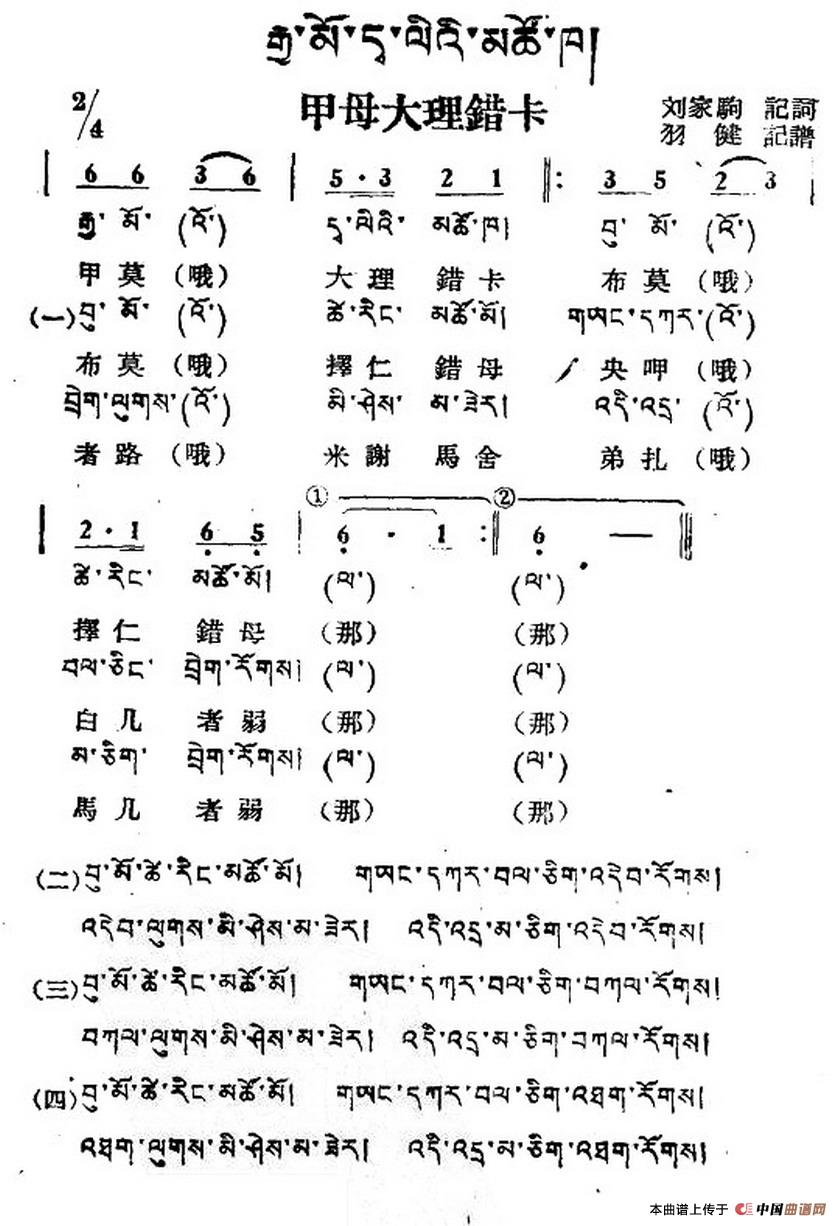 རྒྱ་མོ་དྭ་ལིའི་མཚོ་ཁ།
2/4 甲母大理錯卡 刘家駒 記詞
羽健 記譜
6 6 3 6 | 5 · 3 2 1 ‖: 3 5 2 3 |
རྒྱ་མོ་(འོ་) དྭ་ལིའི་མཚོ་ཁ། བུ་མོ་(འོ་)
甲莫(哦) 大理錯卡 布莫(哦)
(一)བུ་མོ་(འོ་) ཚེ་རིང་མཚོ་མོ། གཡང་དཀར་(འོ་)
布莫(哦) 擇仁錯母 央呷(哦)
བྲེག་ལུགས་(འོ་) མི་ཤེས་མ་ཟེར། འདི་འདྲ་(འོ་)
者路(哦) 米謝馬舍 弟扎(哦)
① ②
2 · 1 6 5 | 6 · 1 :‖ 6 — ‖
ཚེ་རིང་མཚོ་མོ། (ལ་) (ལ་)
擇仁錯母 (那) (那)
བལ་ཅིང་བྲེག་རོགས། (ལ་) (ལ་)
白几者弱 (那) (那)
མ་ཅིག་བྲེག་རོགས། (ལ་) (ལ་)
馬几者弱 (那) (那)
(二)བུ་མོ་ཚེ་རིང་མཚོ་མོ། གཡང་དཀར་བལ་ཅིག་འདེབ་རོགས།
འདེབ་ལུགས་མི་ཤེས་མ་ཟེར། འདི་འདྲ་མ་ཅིག་འདེབ་རོགས།
(三)བུ་མོ་ཚེ་རིང་མཚོ་མོ། གཡང་དཀར་བལ་ཅིག་བཀལ་རོགས།
བཀལ་ལུགས་མི་ཤེས་མ་ཟེར། འདི་འདྲ་མ་ཅིག་བཀལ་རོགས།
(四)བུ་མོ་ཚེ་རིང་མཚོ་མོ། གཡང་དཀར་བལ་ཅིག་འཐག་རོགས།
འཐག་ལུགས་མི་ཤེས་མ་ཟེར། འདི་འདྲ་མ་ཅིག་འཐག་རོགས།
本曲谱上传于 中国曲谱网